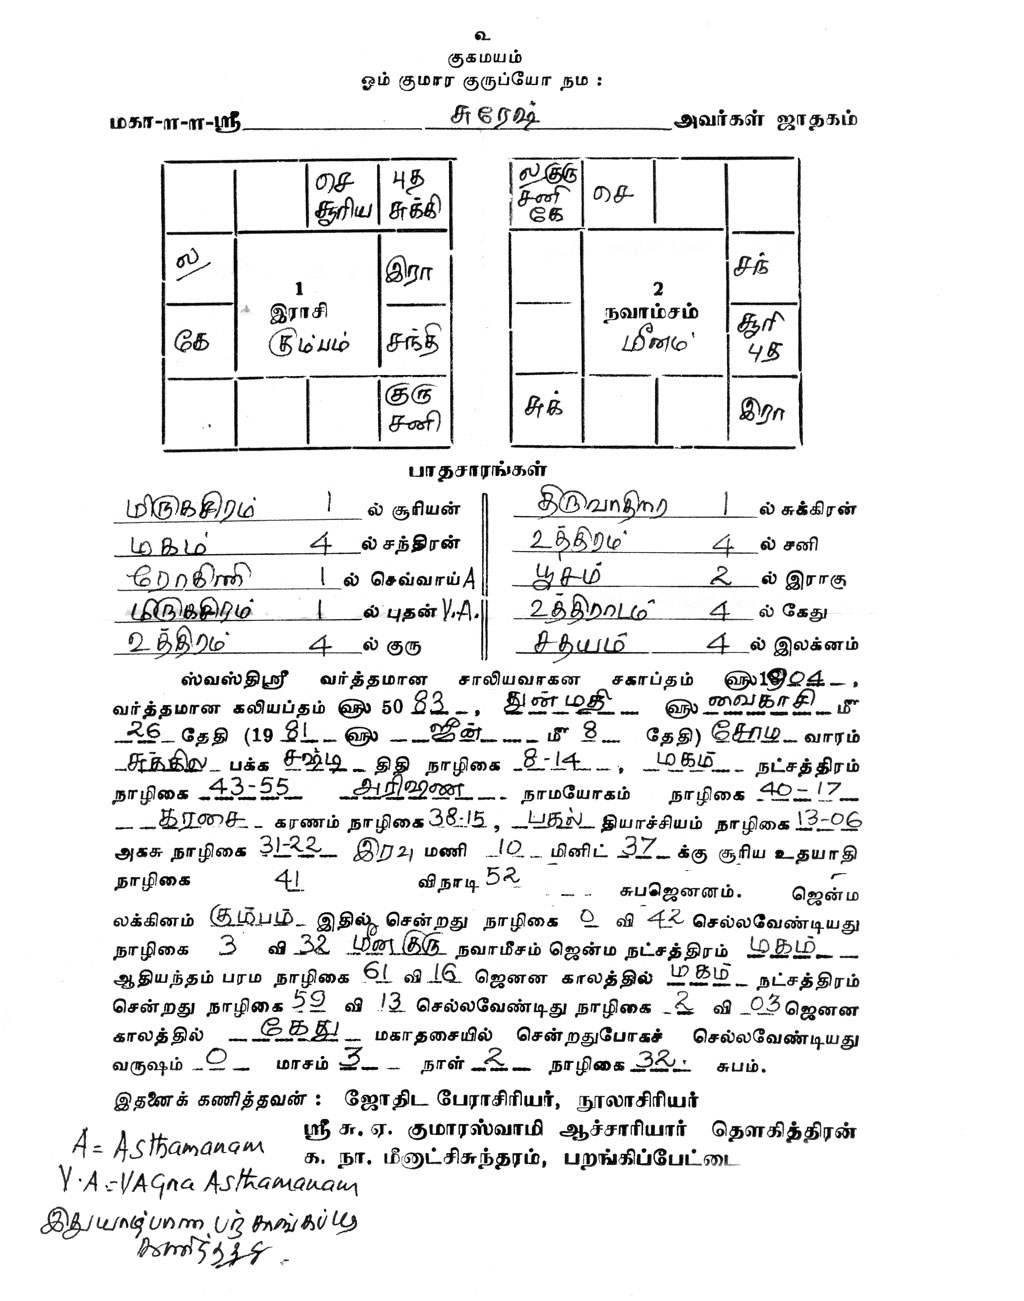 உ
குகமயம்
ஓம் குமார குருப்யோ நம :
மகா-ள-ள-ஸ்ரீ சுரேஷ் அவர்கள் ஜாதகம்
செ சூரிய
புத சுக்கி
ல
இரா
1
இராசி
கும்பம்
கே
சந்தி
குரு
சனி
ல குரு
சனி
கே
செ
சந்
2
நவாம்சம்
மீனம்
சூரி
புத
சுக்
இரா
பாதசாரங்கள்
மிருகசிரம் 1 ல் சூரியன்
மகம் 4 ல் சந்திரன்
ரோகிணி 1 ல் செவ்வாய் A
மிருகசிரம் 1 ல் புதன் V.A.
உத்திரம் 4 ல் குரு
திருவாதிரை 1 ல் சுக்கிரன்
உத்திரம் 4 ல் சனி
பூசம் 2 ல் இராகு
உத்திராடம் 4 ல் கேது
சதயம் 4 ல் இலக்னம்
ஸ்வஸ்திஸ்ரீ வர்த்தமான சாலியவாகன சகாப்தம் ௵ 1904,
வர்த்தமான கலியப்தம் ௵ 50 83, துன்மதி ௵ வைகாசி ௴
26 தேதி (19 81 ௵ ஜீன் ௴ 8 தேதி) சோம வாரம்
சுக்கில பக்க சஷ்டி திதி நாழிகை 8-14, மகம் நட்சத்திரம்
நாழிகை 43-55 அரிஷண நாமயோகம் நாழிகை 40-17
கரசை கரணம் நாழிகை 38-15, பகல் தியாச்சியம் நாழிகை 13-06
அகசு நாழிகை 31-22 இரவு மணி 10 மினிட் 37 க்கு சூரிய உதயாதி
நாழிகை 41 விநாடி 52 சுபஜெனனம். ஜென்ம
லக்கினம் கும்பம் இதில் சென்றது நாழிகை 0 வி 42 செல்லவேண்டியது
நாழிகை 3 வி 32 மீன குரு நவாமீசம் ஜென்ம நட்சத்திரம் மகம்
ஆதியந்தம் பரம நாழிகை 61 வி 16 ஜெனன காலத்தில் மகம் நட்சத்திரம்
சென்றது நாழிகை 59 வி 13 செல்லவேண்டிது நாழிகை 2 வி 03 ஜெனன
காலத்தில் கேது மகாதசையில் சென்றதுபோகச் செல்லவேண்டியது
வருஷம் 0 மாசம் 3 நாள் 2 நாழிகை 32 சுபம்.
இதனைக் கணித்தவன் : ஜோதிட பேராசிரியர், நூலாசிரியர்
ஸ்ரீ சு. ஏ. குமாரஸ்வாமி ஆச்சாரியார் தௌகித்திரன்
க. நா. மீனாட்சிசுந்தரம், பறங்கிப்பேட்டை
A = Asthamanam
V.A = VAgna Asthamanam
இது யாழ்பாண
கணித்தது